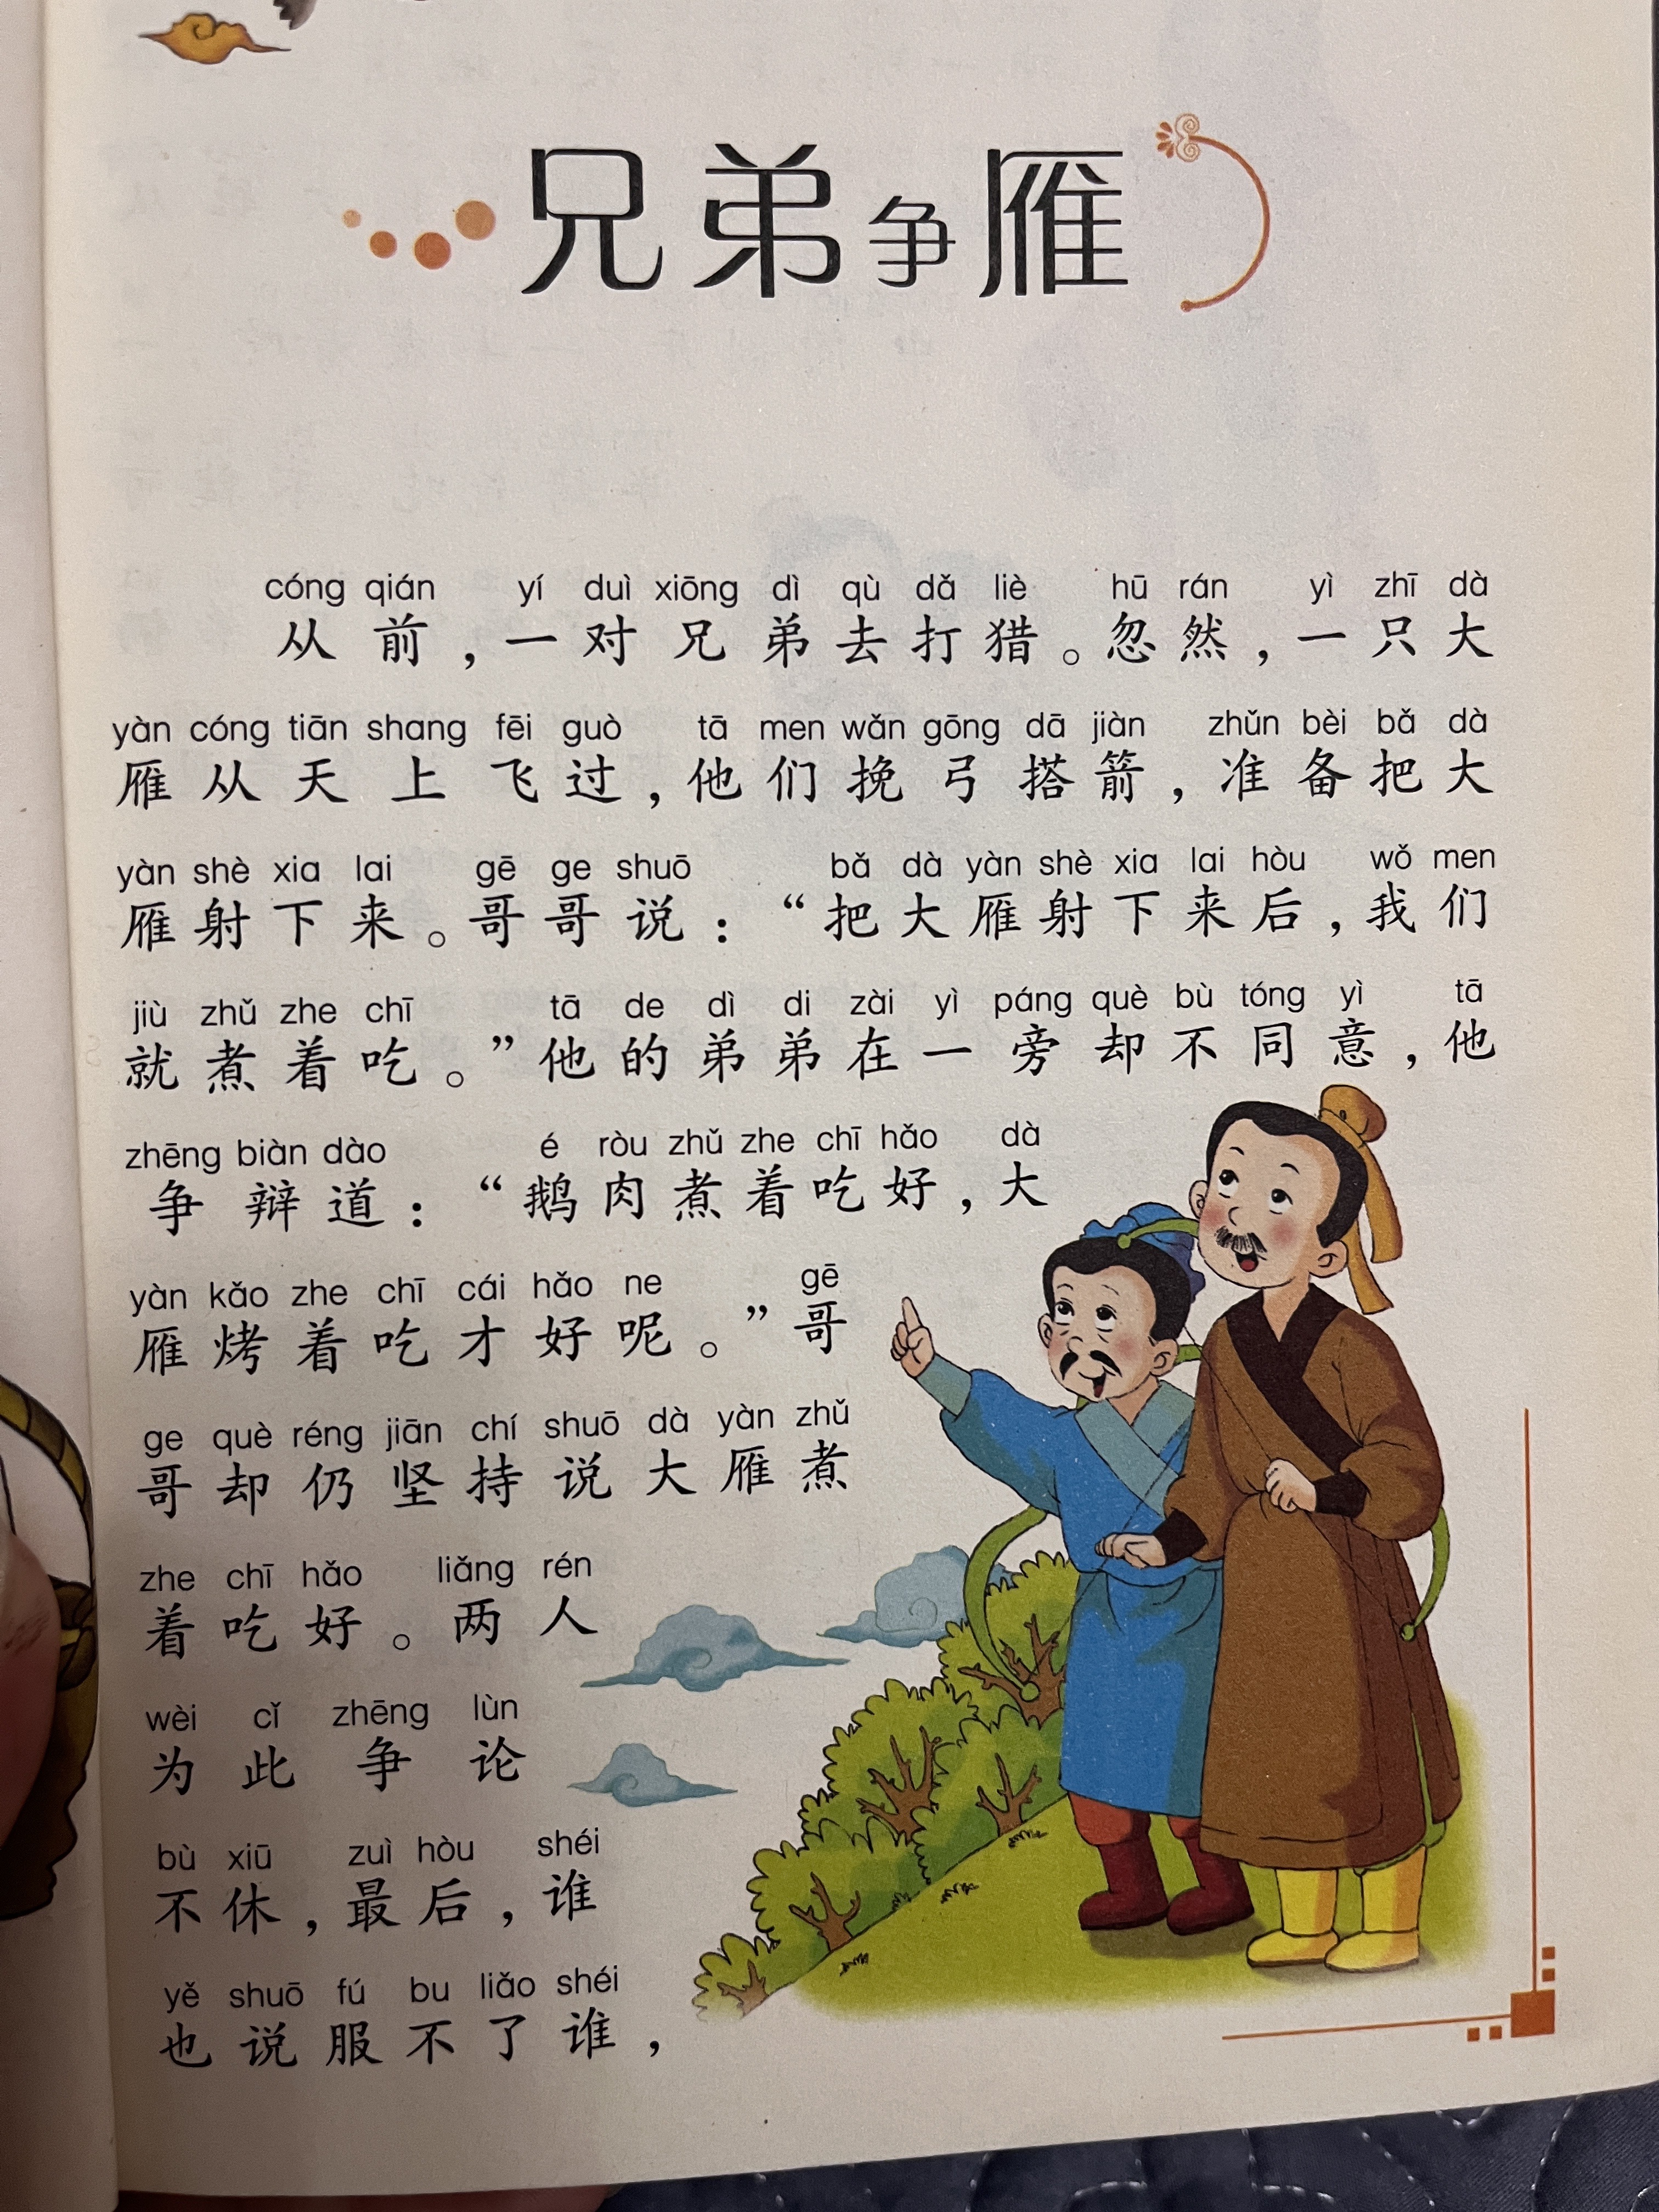 兄弟争雁
cóng qián yí duì xiōng dì qù dǎ liè hū rán yì zhī dà
从前，一对兄弟去打猎。忽然，一只大
yàn cóng tiān shang fēi guò tā men wǎn gōng dā jiàn zhǔn bèi bǎ dà
雁从天上飞过，他们挽弓搭箭，准备把大
yàn shè xia lai gē ge shuō bǎ dà yàn shè xia lai hòu wǒ men
雁射下来。哥哥说：“把大雁射下来后，我们
jiù zhǔ zhe chī tā de dì di zài yì páng què bù tóng yì tā
就煮着吃。”他的弟弟在一旁却不同意，他
zhēng biàn dào é ròu zhǔ zhe chī hǎo dà
争辩道：“鹅肉煮着吃好，大
yàn kǎo zhe chī cái hǎo ne gē
雁烤着吃才好呢。”哥
ge què réng jiān chí shuō dà yàn zhǔ
哥却仍坚持说大雁煮
zhe chī hǎo liǎng rén
着吃好。两人
wèi cǐ zhēng lùn
为此争论
bù xiū zuì hòu shéi
不休，最后，谁
yě shuō fú bu liǎo shéi
也说服不了谁，